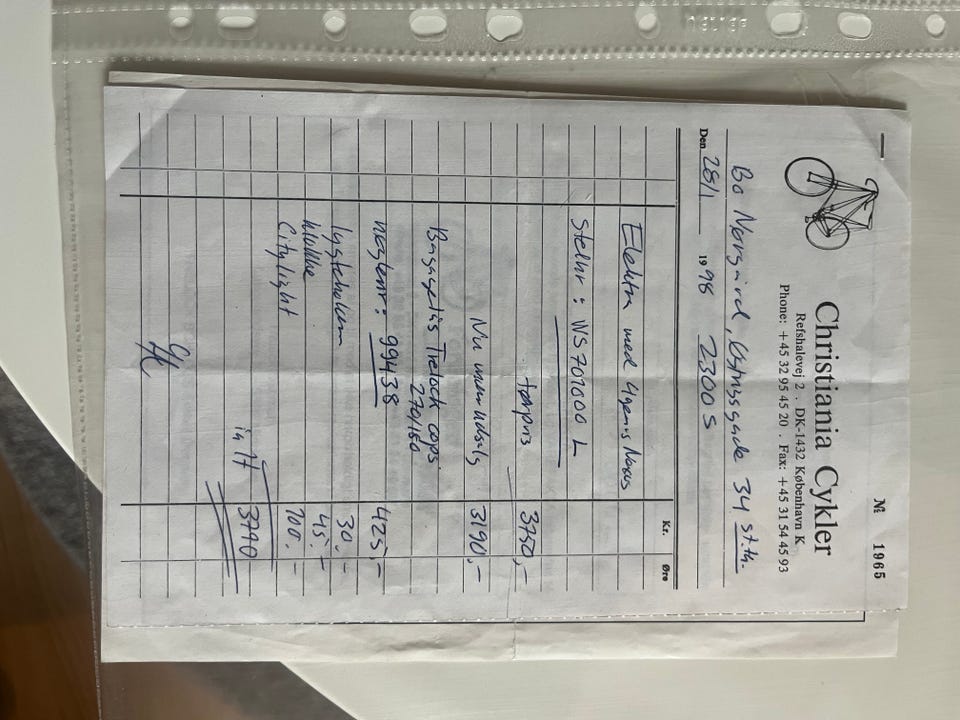 № 1965
Christiania Cykler
Refshalevej 2 . DK-1432 København K
Phone: +45 32 95 45 20 . Fax: +45 31 54 45 93
Bo Nørgård, 34 st.th.
Den 28/1 1998 2300 S
Kr. Øre
Elektra med 4gears Nexus
Stelnr : WS701000 L
førpris 3750,-
Nu 3190,-
Bagagelås Trelock cops
270/150
nøglenr: 99438 425,-
lygteholdern 30.-
klokke 45.-
Citylight 100.-
in 17 3790